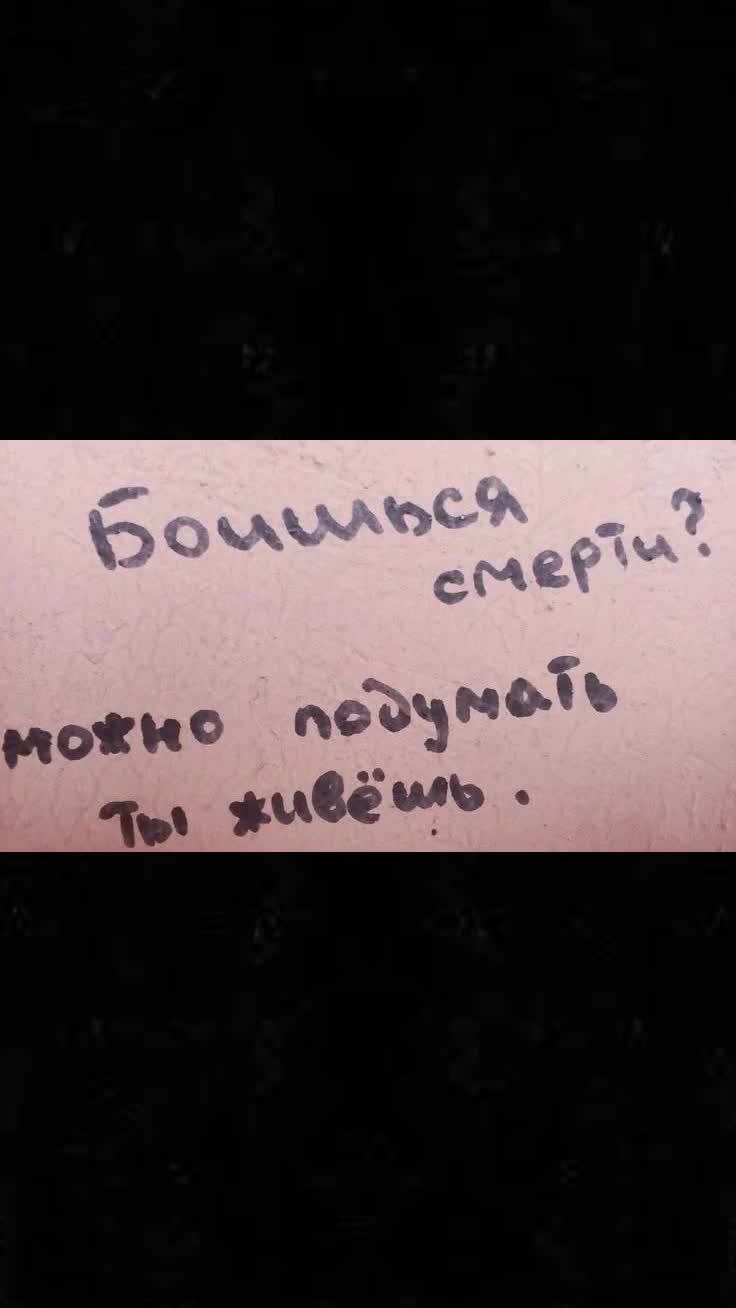 Боишься
смерти?
можно подумать
ты живёшь.